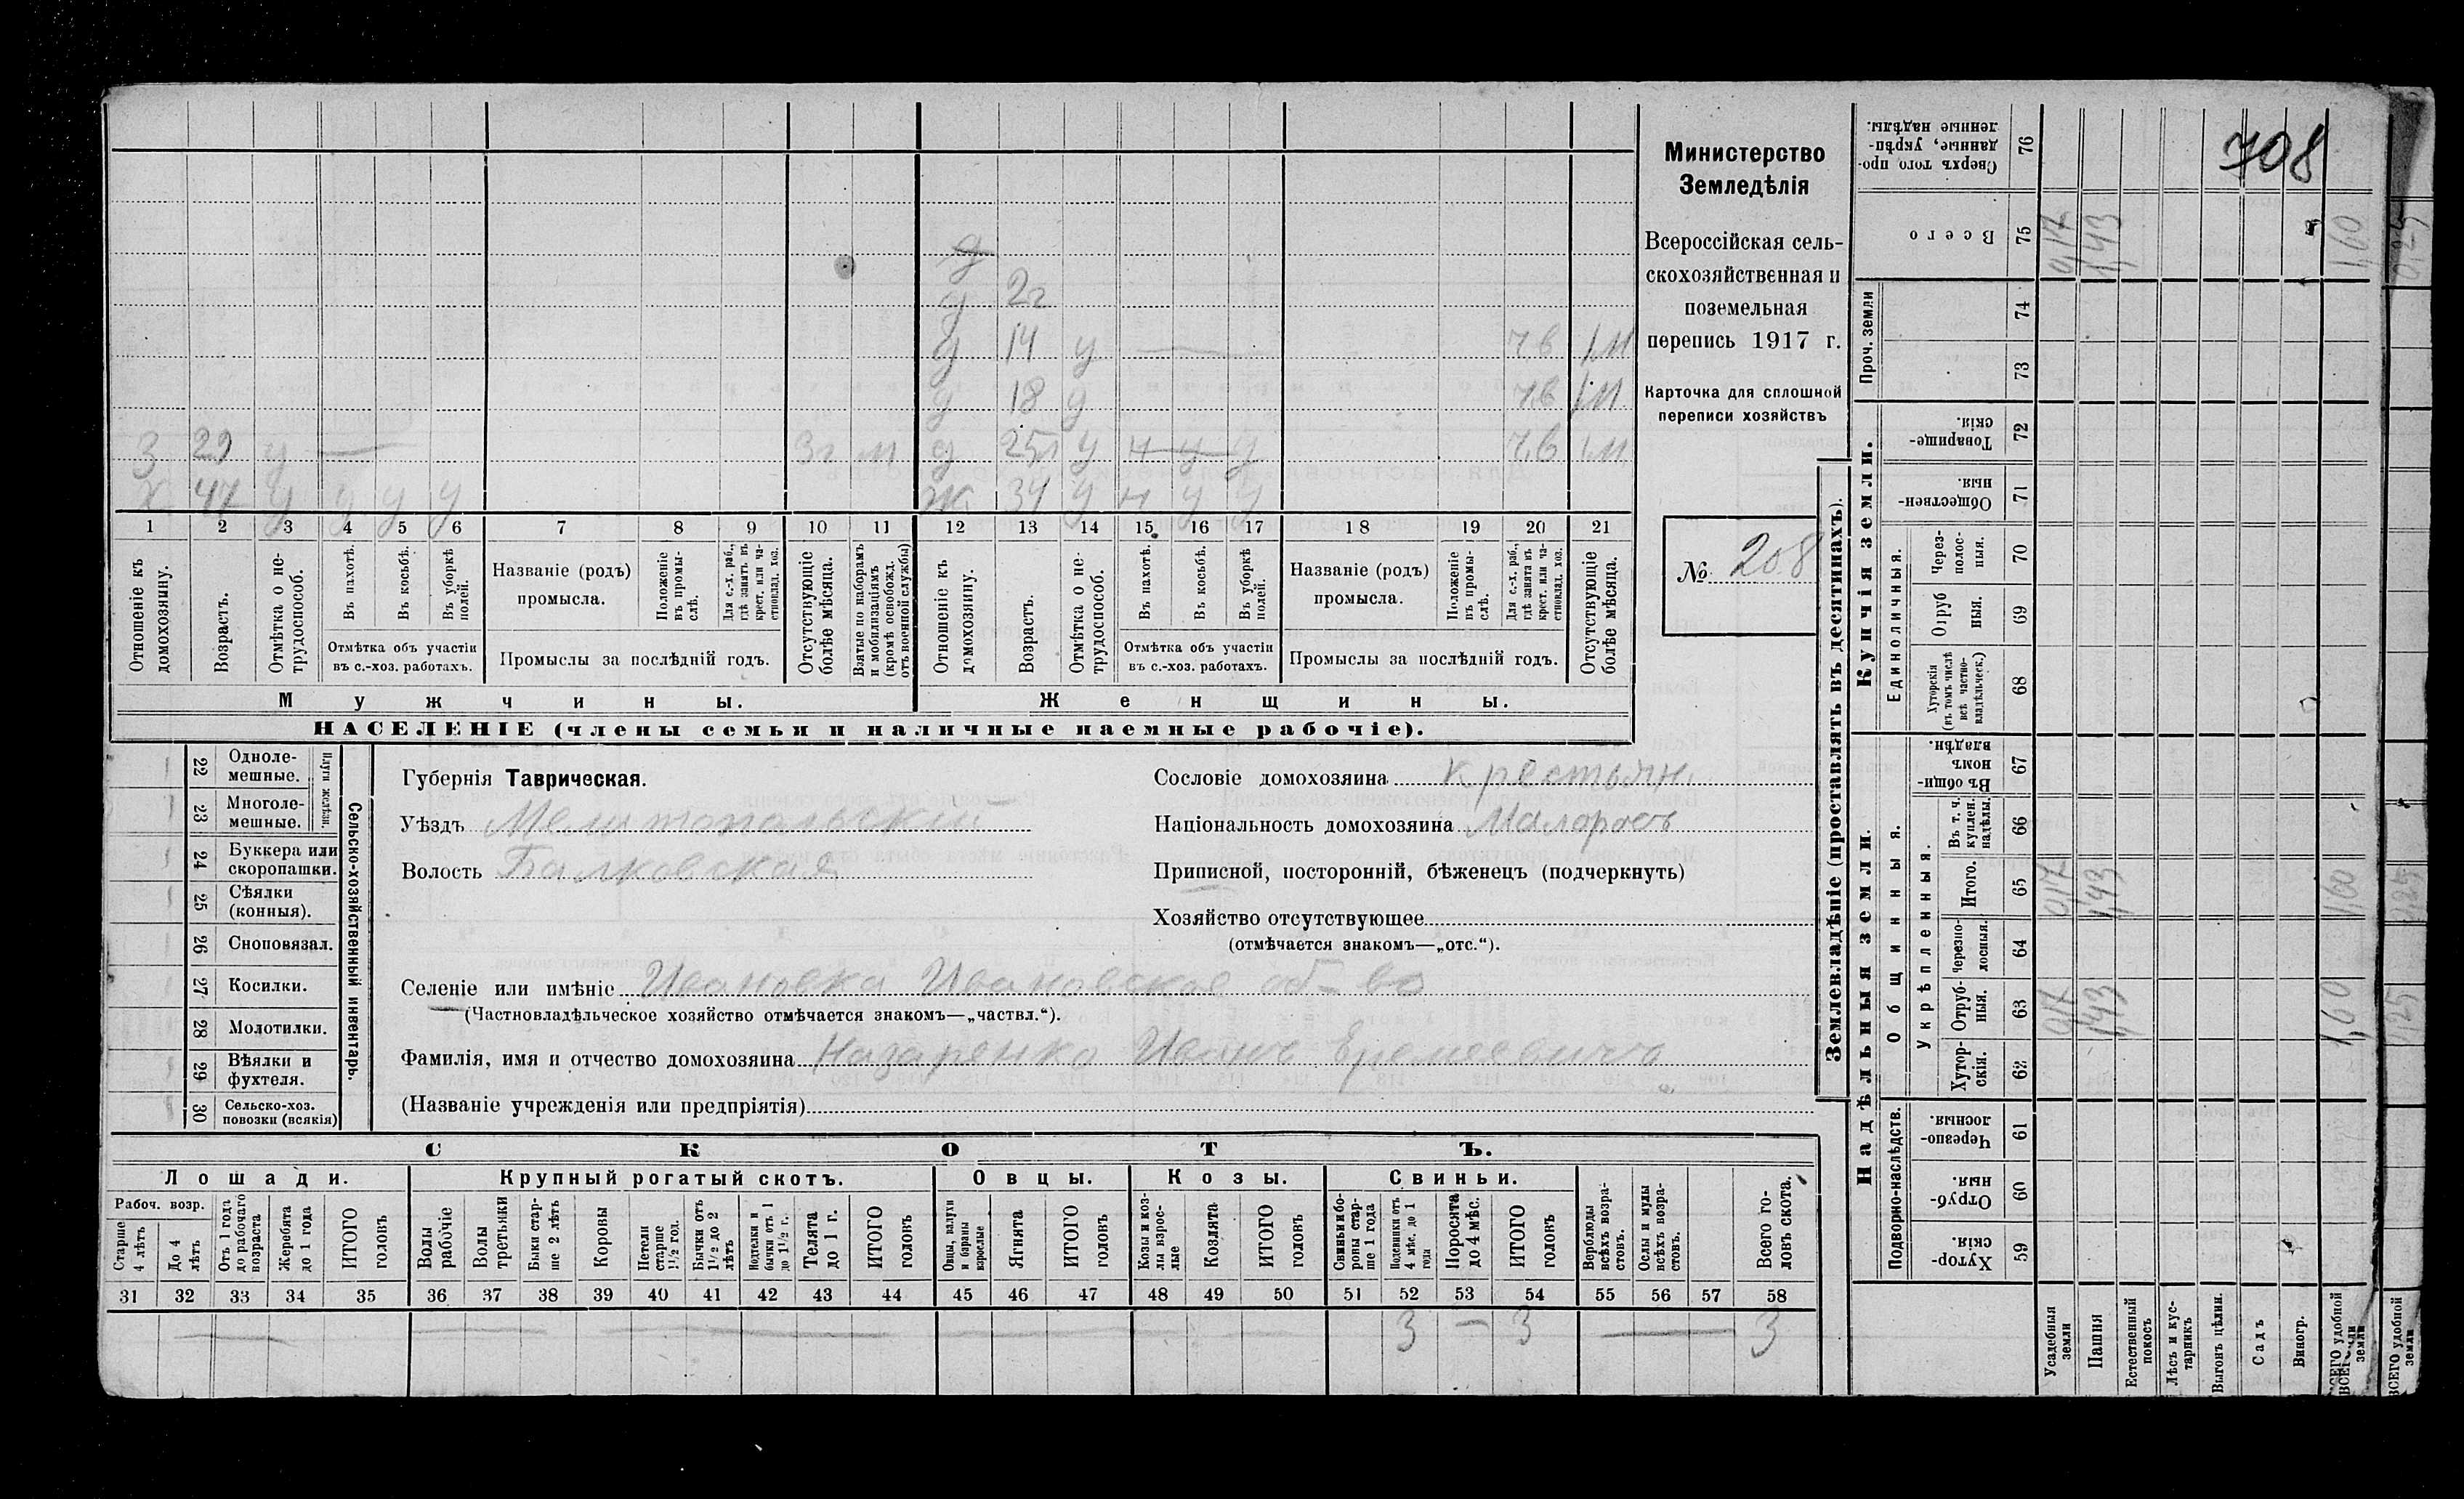 708
Министерство
Земледѣлія
Всероссійская сель-
скохозяйственная и
поземельная
перепись 1917 г.
Карточка для сплошной
переписи хозяйствъ
№ 208
д
д 2г
д 14 у — 7,в 1м
д 18 д 7,в 1м
З 29 у — 3г м д 25л у н у у 7,в 1м
Х 47 у у у у Ж 34 у н у у
1 2 3 4 5 6 7 8 9 10 11 12 13 14 15 16 17 18 19 20 21
Отношеніе къ домохозяину.
Возрастъ.
Отмѣтка о не-трудоспособ.
Въ пахотѣ.
Въ косьбѣ.
Въ уборкѣ полей.
Отмѣтка объ участіи
въ с.-хоз. работахъ.
Названіе (родъ)
промысла.
Положеніе въ промы-слѣ.
Для с.-х. раб., гдѣ занятъ въ крест. или ча-стновлад. хоз.
Промыслы за послѣдній годъ.
Отсутствующіе болѣе мѣсяца.
Взятые по наборамъ и мобилизаціямъ (кромѣ освобожд. отъ военной службы)
Отношеніе къ домохозяину.
Возрастъ.
Отмѣтка о не-трудоспособ.
Въ пахотѣ.
Въ косьбѣ.
Въ уборкѣ полей.
Отмѣтка объ участіи
въ с.-хоз. работахъ.
Названіе (родъ)
промысла.
Положеніе въ промы-слѣ.
Для с.-х. раб., гдѣ занята въ крест. или ча-стновлад. хоз.
Промыслы за послѣдній годъ.
Отсутствующіе болѣе мѣсяца.
Мужчины.
Женщины.
НАСЕЛЕНІЕ (члены семьи и наличные наемные рабочіе).
Сельско-хозяйственный инвентарь.
Плуги желѣзн.
22 Одноле-мешные.
23 Многоле-мешные.
24 Буккера или скоропашки.
25 Сѣялки (конныя).
26 Сноповязал.
27 Косилки.
28 Молотилки.
29 Вѣялки и фухтеля.
30 Сельско-хоз. повозки (всякія)
Губернія Таврическая.
Уѣздъ Мелитопольскій
Волость Балковская
Сословіе домохозяина крестьян.
Національность домохозяина Малоросъ
Приписной, посторонній, бѣженецъ (подчеркнуть)
Хозяйство отсутствующее
(отмѣчается знакомъ—„отс.“).
Селеніе или имѣніе Ивановка Ивановское об-во
(Частновладѣльческое хозяйство отмѣчается знакомъ—„частвл.“).
Фамилія, имя и отчество домохозяина Назаренко Иванъ Еремеевичъ
(Названіе учрежденія или предпріятія)
СКОТЪ.
Лошади. Крупный рогатый скотъ. Овцы. Козы. Свиньи.
Рабоч. возр.
Старше 4 лѣтъ
До 4 лѣтъ
Отъ 1 года до рабочаго возраста
Жеребята до 1 года
ИТОГО головъ
Волы рабочіе
Волы третьяки
Быки стар-ше 2 лѣтъ
Коровы
Нетели старше 1½ год.
Бычки отъ 1½ до 2 лѣтъ
Нотелки и бычки отъ 1 до 1½ г.
Телята до 1 г.
ИТОГО головъ
Овцы, валухи и бараны взрослые
Ягнята
ИТОГО головъ
Козы и коз-лы взрос-лые
Козлята
ИТОГО головъ
Свиньи и бо-роны стар-ше 1 года
Подсвинки отъ 4 мѣс. до 1 года
Поросята до 4 мѣс.
ИТОГО головъ
Верблюды всѣхъ возра-стовъ.
Ослы и мулы всѣхъ возра-стовъ.
Всего го-ловъ скота.
31 32 33 34 35 36 37 38 39 40 41 42 43 44 45 46 47 48 49 50 51 52 53 54 55 56 57 58
— — — — — 3 — 3 — 3
Землевладѣніе (проставлять въ десятинахъ).
Надѣльныя земли.
Купчія земли.
Проч. земли
Подворно-наслѣдств.
Общинныя.
Укрѣпленныя.
Единоличныя.
76 Сверхъ того про-данные, укрѣп-ленные надѣлы.
75 Всего 0,17 1,43 1,60 0,25
74
73
72 Товарище-скія
71 Обществен-ныя
70 Через-полос-ныя.
69 Отруб ныя.
68 Хуторскія (въ томъ числѣ всѣ частно-владѣльческ.)
67 Въ общи-номъ владѣн.
66 Въ т. ч. куплен. надѣлы.
65 Итого. 0,17 1,43 1,60 0,25
64 Черезпо-лосныя.
63 Отруб-ныя. 0,17 1,43 1,60 0,25
62 Хутор-скія.
61 Черезпо-лосныя
60 Отруб-ныя.
59 Хутор-скія.
Усадебныя земли
Пашня
Естественный покосъ
Лѣсъ и кус-тарникъ
Выгонъ цѣлин.
Садъ
Виногр.
ВСЕГО удобной земли
ВСЕГО удобной земли